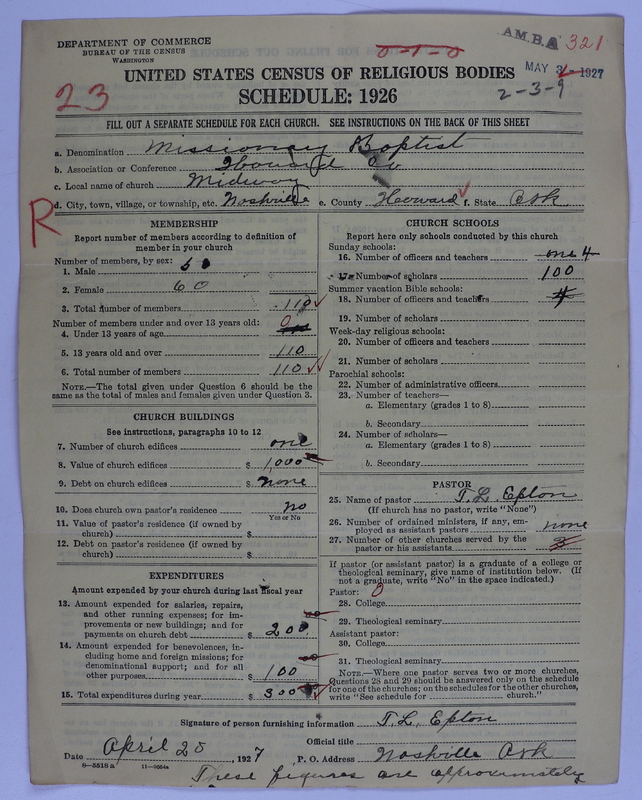 DEPARTMENT OF COMMERCE
BUREAU OF THE CENSUS
WASHINGTON
A.M.B.A 321
MAY 2 1927
2-3-9
23
UNITED STATES CENSUS OF RELIGIOUS BODIES
SCHEDULE: 1926
FILL OUT A SEPARATE SCHEDULE FOR EACH CHURCH. SEE INSTRUCTIONS ON THE BACK OF THIS SHEET
a. Denomination Missionary Baptist
b. Association or Conference Howard Co
c. Local name of church Midway
d. City, town, village, or township, etc. Nashville e. County Howard f. State Ark
R
MEMBERSHIP
Report number of members according to definition of
member in your church
Number of members, by sex:
1. Male 50
2. Female 60
3. Total number of members 110
Number of members under and over 13 years old:
4. Under 13 years of age 0
5. 13 years old and over 110
6. Total number of members 110
NOTE.—The total given under Question 6 should be the
same as the total of males and females given under Question 3.
CHURCH BUILDINGS
See instructions, paragraphs 10 to 12
7. Number of church edifices one
8. Value of church edifices $ 1,000
9. Debt on church edifices $ none
10. Does church own pastor's residence no
Yes or No
11. Value of pastor's residence (if owned by
church) $
12. Debt on pastor's residence (if owned by
church) $
EXPENDITURES
Amount expended by your church during last fiscal year
13. Amount expended for salaries, repairs,
and other running expenses; for im-
provements or new buildings; and for
payments on church debt $ 200
14. Amount expended for benevolences, in-
cluding home and foreign missions; for
denominational support; and for all
other purposes $ 100
15. Total expenditures during year $ 300
CHURCH SCHOOLS
Report here only schools conducted by this church
Sunday schools:
16. Number of officers and teachers one 4
17. Number of scholars 100
Summer vacation Bible schools:
18. Number of officers and teachers 4
19. Number of scholars
Week-day religious schools:
20. Number of officers and teachers
21. Number of scholars
Parochial schools:
22. Number of administrative officers
23. Number of teachers—
a. Elementary (grades 1 to 8)
b. Secondary
24. Number of scholars—
a. Elementary (grades 1 to 8)
b. Secondary
PASTOR
25. Name of pastor T. L. Epton
(If church has no pastor, write "None")
26. Number of ordained ministers, if any, em-
ployed as assistant pastors none
27. Number of other churches served by the
pastor or his assistants 3
If pastor (or assistant pastor) is a graduate of a college or
theological seminary, give name of institution below. (If
not a graduate, write "No" in the space indicated.)
Pastor: 0
28. College
29. Theological seminary
Assistant pastor:
30. College
31. Theological seminary
NOTE.—Where one pastor serves two or more churches,
Questions 28 and 29 should be answered only on the schedule
for one of the churches; on the schedules for the other churches,
write "See schedule for church."
Signature of person furnishing information T. L. Epton
Official title
Date April 20, 1927 P. O. Address Nashville Ark
8—5518a 11—9664a
These figures are approximately